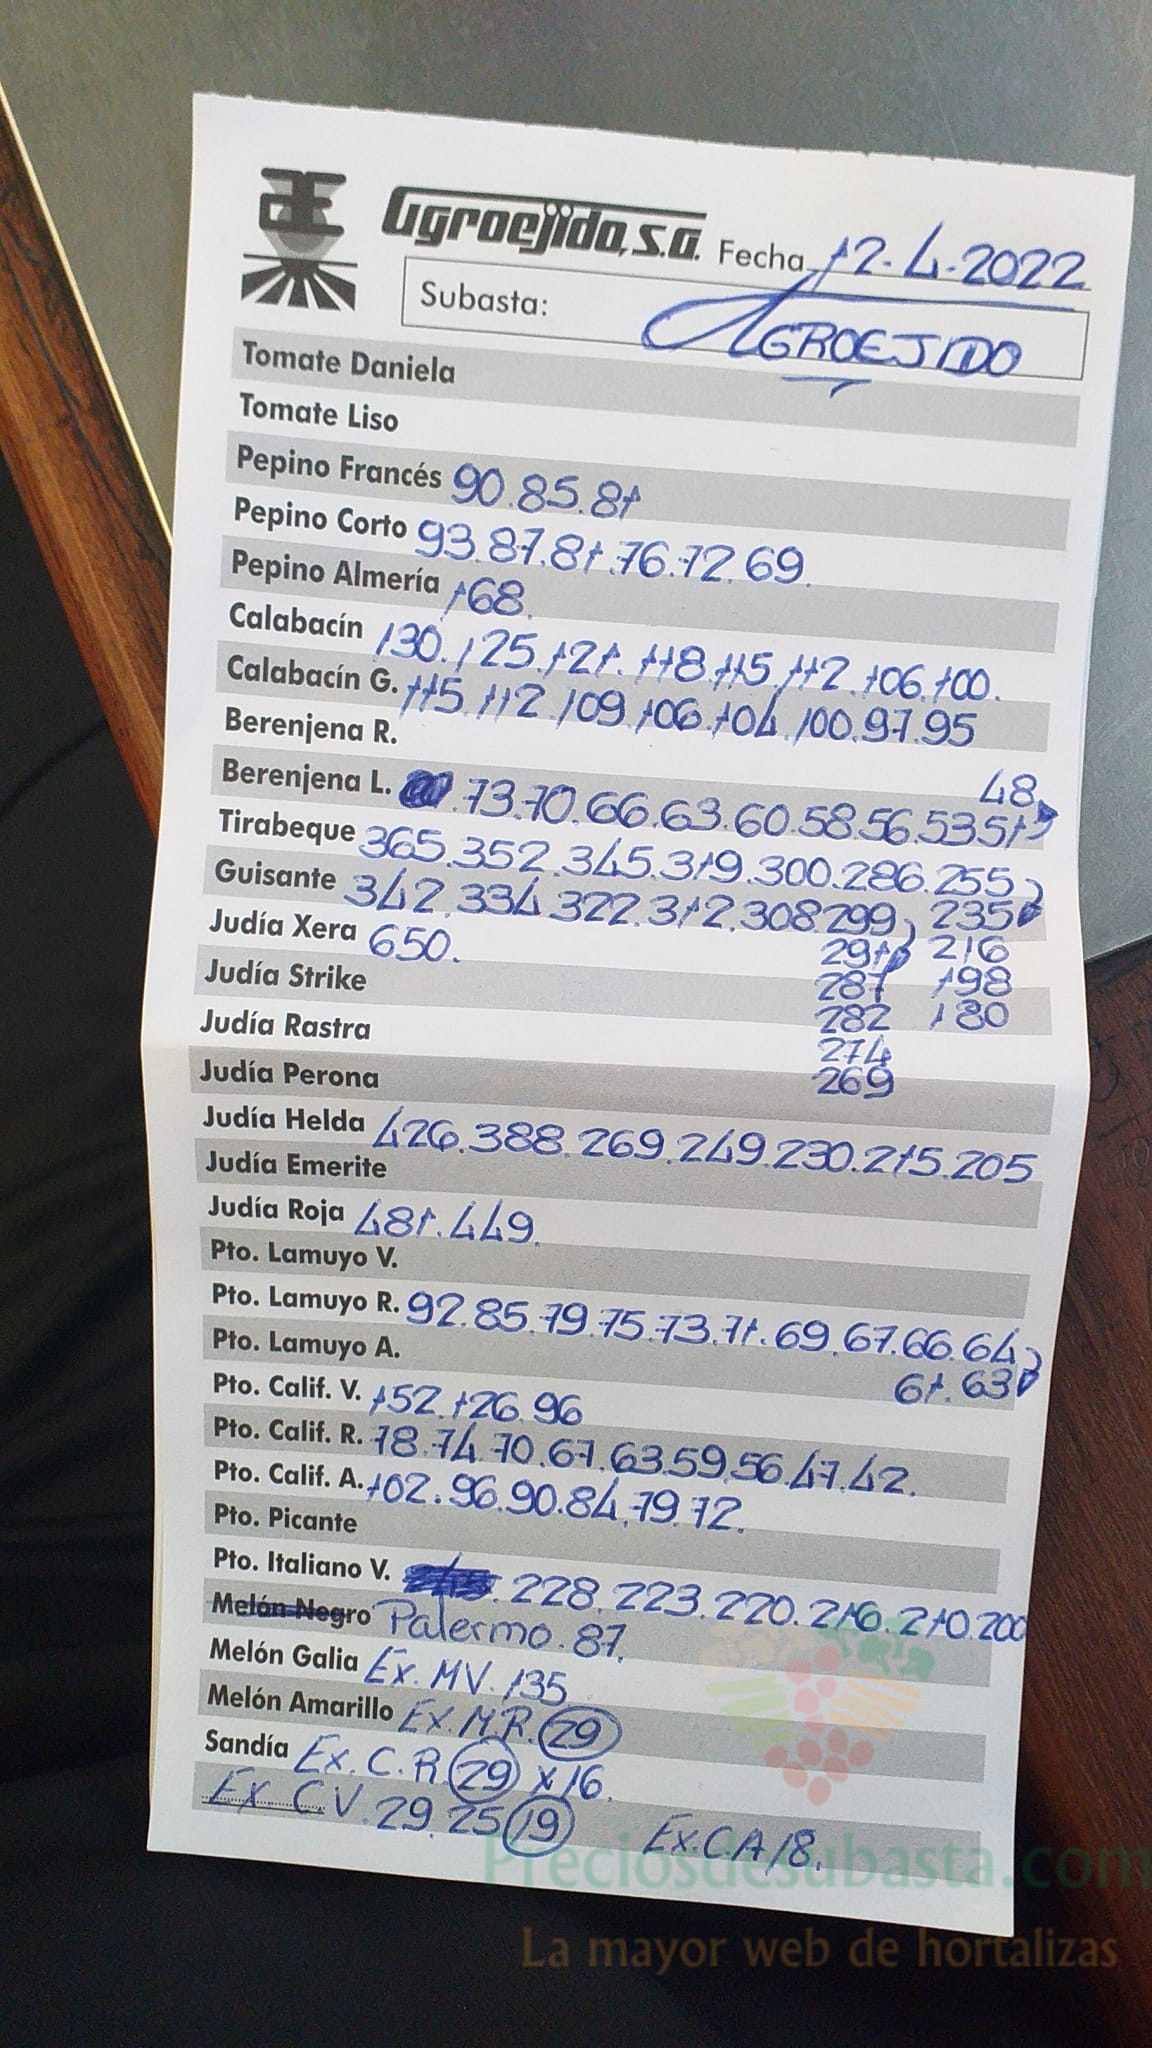 Agroejido, S.A. Fecha 12-4-2022
Subasta: AGROEJIDO
Tomate Daniela
Tomate Liso
Pepino Francés 90.85.81
Pepino Corto 93.87.81.76.72.69.
Pepino Almería 168.
Calabacín 130.125.121.118.115.112.106.100.
Calabacín G. 115.112.109.106.104.100.97.95
Berenjena R.
48
Berenjena L. .73.70.66.63.60.58.56.53.51
Tirabeque 365.352.345.319.300.286.255
235
216
198
180
Guisante 342.334.322.312.308.299
291
287
282
274
269
Judía Xera 650.
Judía Strike
Judía Rastra
Judía Perona
Judía Helda 426.388.269.249.230.215.205
Judía Emerite
Judía Roja 481.449.
Pto. Lamuyo V.
Pto. Lamuyo R. 92.85.79.75.73.71.69.67.66.64
61.63
Pto. Lamuyo A.
Pto. Calif. V. 152.126.96
Pto. Calif. R. 78.74.70.67.63.59.56.47.42.
Pto. Calif. A. 102.96.90.84.79.72.
Pto. Picante
Pto. Italiano V. .228.223.220.216.210.200
Melón Negro Palermo.87.
Melón Galia Ex.MV.135
Melón Amarillo Ex.M.R.29
Sandía Ex.C.R.29 x 16.
Ex CV.29.25 19 Ex.C.A 18.
Preciosdesubasta.com
La mayor web de hortalizas